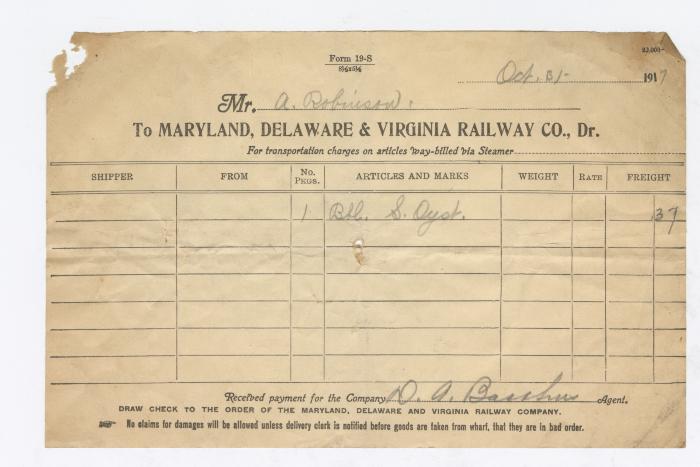 Form 19-S
8½x5½
Oct. 31- 1917
Mr. A. Robinson.
To MARYLAND, DELAWARE & VIRGINIA RAILWAY CO., Dr.
For transportation charges on articles way-billed via Steamer
SHIPPER FROM No. Pkgs. ARTICLES AND MARKS WEIGHT RATE FREIGHT
1 Bbl. S. Oyst. 37
Received payment for the Company D. A. Agent.
DRAW CHECK TO THE ORDER OF THE MARYLAND, DELAWARE AND VIRGINIA RAILWAY COMPANY.
No claims for damages will be allowed unless delivery clerk is notified before goods are taken from wharf, that they are in bad order.